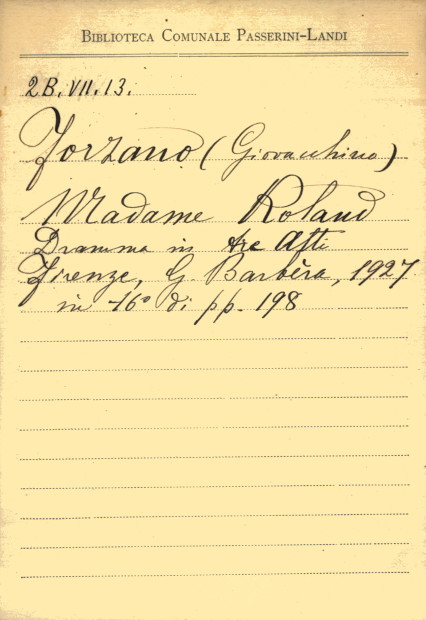 BIBLIOTECA COMUNALE PASSERINI-LANDI
2B.VII.13.
Forzano (Giovacchino)
Madame Roland
Dramma in tre Atti
Firenze, G. Barbèra, 1927
in-16º di pp. 198